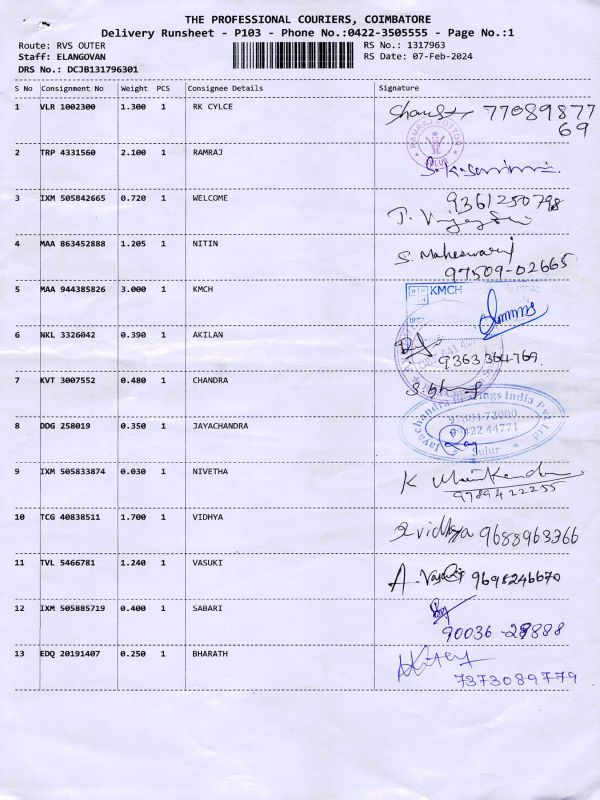 THE PROFESSIONAL COURIERS, COIMBATORE
Delivery Runsheet - P103 - Phone No.:0422-3505555 - Page No.:1
Route: RVS OUTER
RS No.: 1317963
Staff: ELANGOVAN
RS Date: 07-Feb-2024
DRS No.: DCJB131796301
S No Consignment No Weight PCS Consignee Details Signature
1 VLR 1002300 1.300 1 RK CYLCE 7708987769
RAMRAJ COTTON
SULUR
2 TRP 4331560 2.100 1 RAMRAJ
3 IXM 505842665 0.720 1 WELCOME 9361250798
4 MAA 863452888 1.205 1 NITIN S. Maheswari
97509-02665
5 MAA 944385826 3.000 1 KMCH KMCH
6 NKL 3326042 0.390 1 AKILAN 9363364769.
7 KVT 3007552 0.480 1 CHANDRA
8 DDG 258019 0.350 1 JAYACHANDRA Jayachandra Bearings India Pvt Ltd
Sulur
9 IXM 505833874 0.030 1 NIVETHA
9789422255
10 TCG 40838511 1.700 1 VIDHYA vidhya 9688963366
11 TVL 5466781 1.240 1 VASUKI 9698246670
12 IXM 505885719 0.400 1 SABARI
90036-29888
13 EDQ 20191407 0.250 1 BHARATH
7373089779